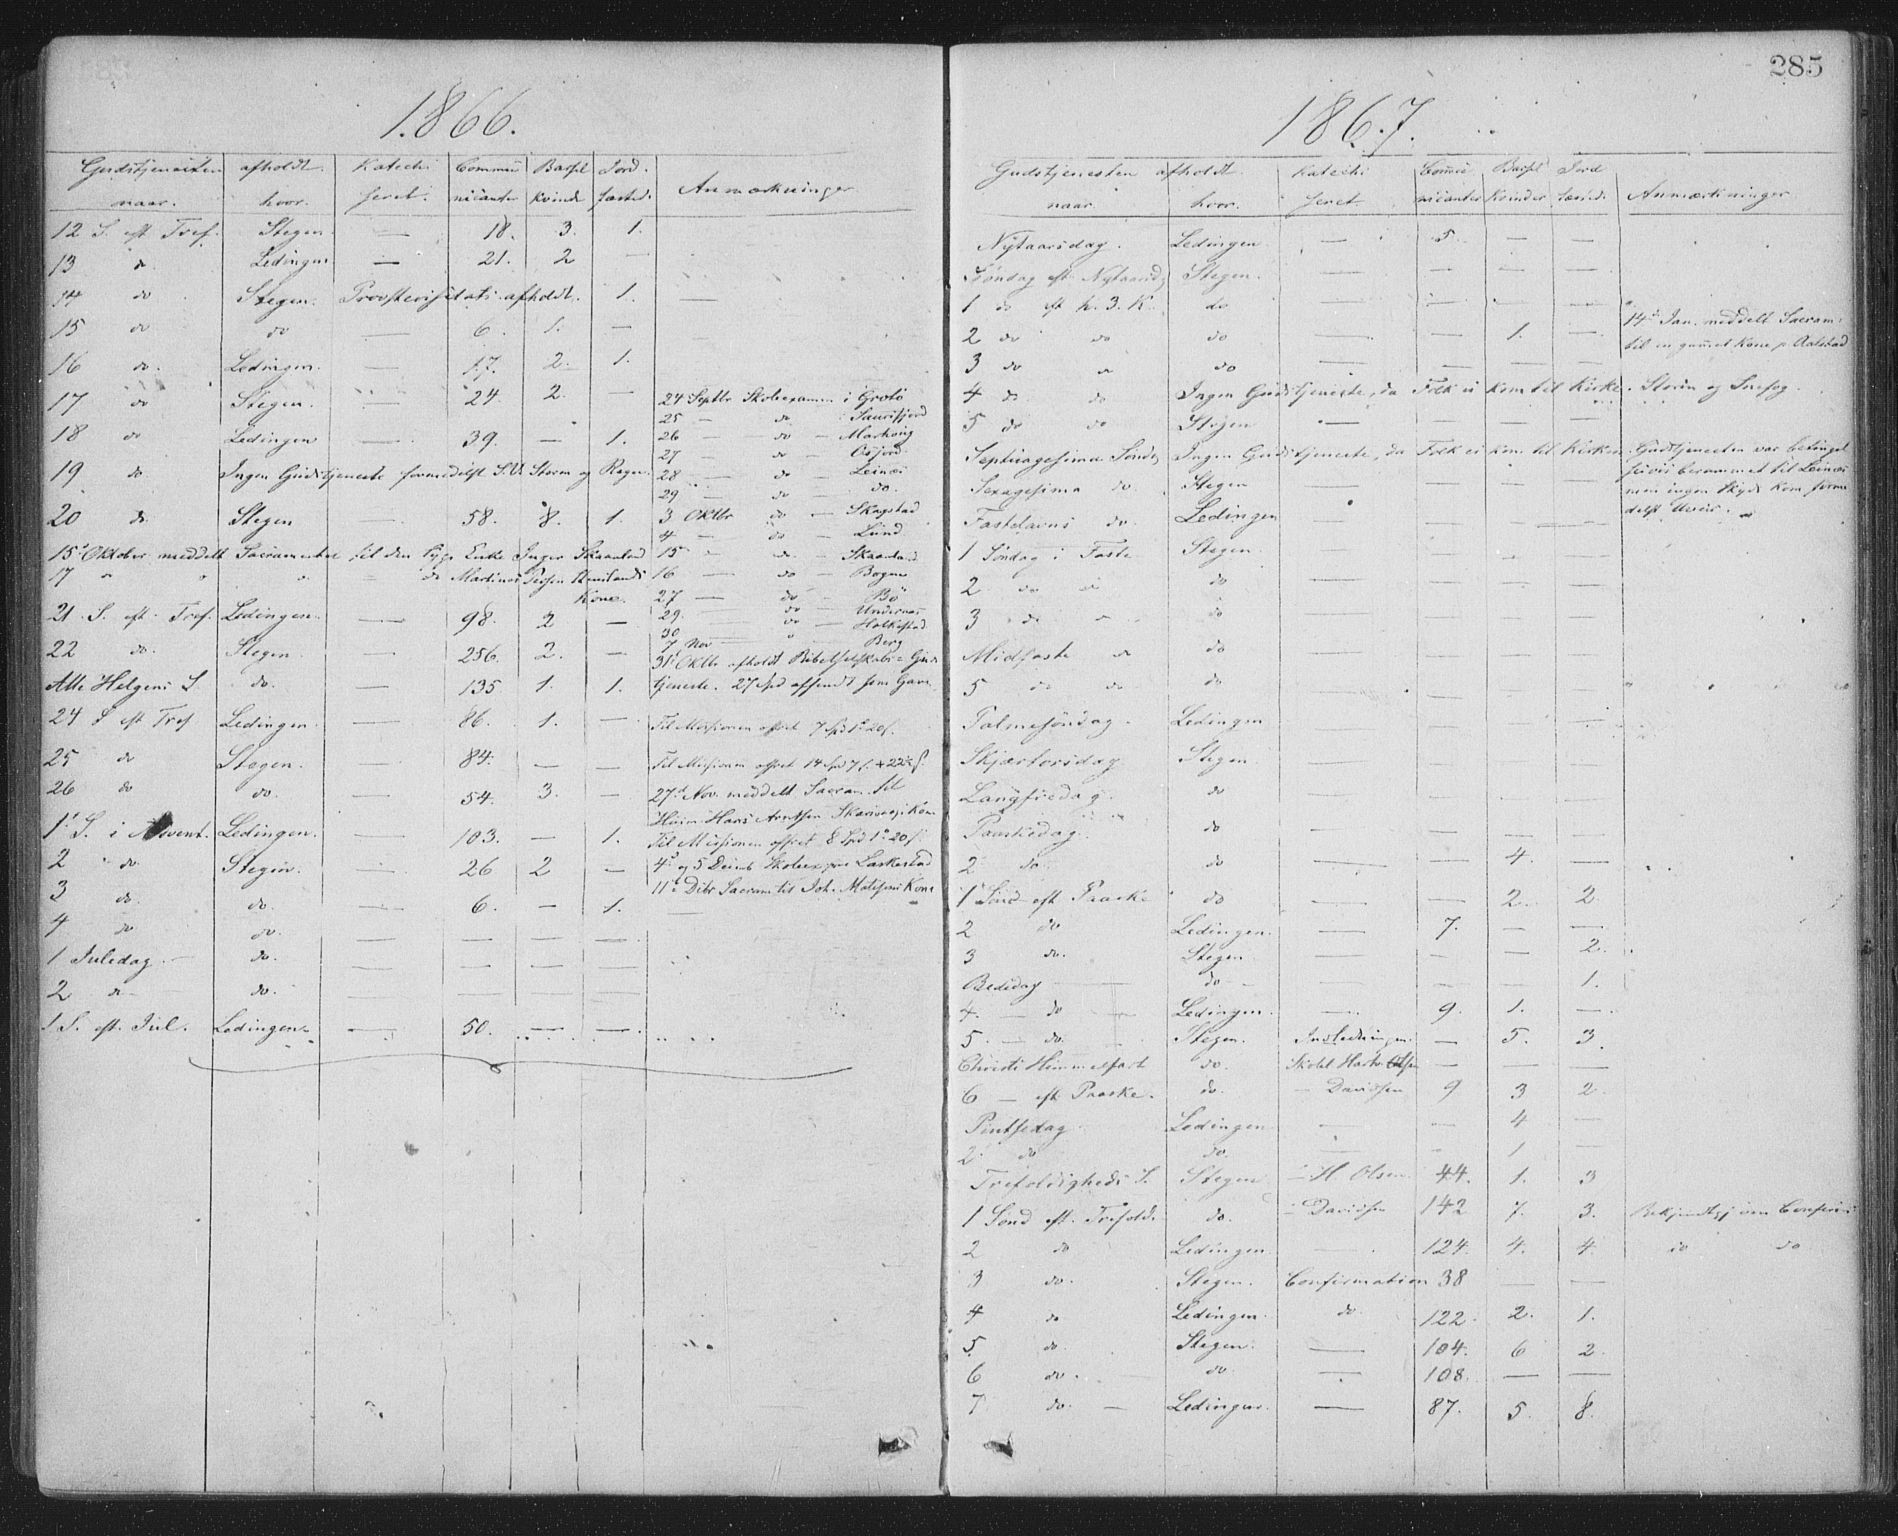 1866.
Gudstjenesten afholdt Katechi Commu Barsel Jord
naar. hvor. seret. nicanter Kvinder fæstede. Anmærkninger
12 S. eft Tref. Stegen — 18. 3. 1.
13 do Ledingen — 21. 2 —
14 do Stegen. Provstevisitats afholdt. 1.
15 do do — 6. 1. —
16 do. Ledingen. — 17. 2. 1.
17 do Stegen. — 24 2. — 24 Septbr Skoleexamen i Grotö
25 — do
18 do Ledingen — 39. — 1. 26 — do —
27 — do —
19 do Ingen Gudstjeneste formedelst S.V. Storm og Regn. 28 — do — Leines
29 — do — do.
20 do Stegen — 58. 8. 1. 3 Oktbr do — Skagstad
4 — do — Lund
15d Oktober meddelt Sacramentet til den syge Enke Inger Skaanland 15 do Skaanland
17 do Martinus Kone. 16 — do — Bogen
27 — do — Bö
21 S. eft. Tref. Ledingen. — 98. 2 — 29. do
30 do
22 do. Stegen. — 256. 2. — 7 Nov Berg
31 Oktbr afholdt Bibelselskabs Guds
Alle Helgens S. do. — 135 1. 1. tjeneste. 27 Spd som Gave
24 S eft Tref Ledingen. — 86. 1. — Til Missionen offret 7 Spd
25 do Stegen. — 84. — — Til Missionen offret 14 Spd
26 do do. — 54. 3. — 27d Nov. meddelt Sacram. til
Hans Arntsen Kone
1' S. i Advent. Ledingen. — 103. — 1. Til Missionen offret 8 Spd
2 do Stegen. — 26 2 — 4d og 5 Decemb Laskestad
3 do. do. — 6. — 1. 11te Dcbr Sacram til Joh. Kone
4 do do. — — — —
1 Juledag. do. — — — —
2 do do. — — — —
1 S. eft. Jul. Ledingen. — 50. — —
285
1867.
Gudstjenesten afholdt Katechi Commu Barsel Jord
naar. hvor. seret. nicanter Kvinder Anmærkninger
Nytaarsdag. Ledingen — 5. — —
Söndag eft Nytaarsd. Stegen. — — — —
1 do eft h. 3. K. do — — — —
14d Jan. meddelt Sacram:
2 do do do — — 1. — til en gammel Kone p.
3 do do do — — — —
4 do do Ingen Gudstjeneste, da Folk ei kom til Kirke. Storm og Snefog.
5 do do Stegen — — — —
Septuagesima Sönd. Ingen Gudstjeneste, da Folk ei kom til Kirken. Gudtjenesten var
berammet til Leines
Sexagesima do. Stegen — — — — men ingen Skyds kom forme
Fastelavns do. Ledingen — — — — delst Uveir.
1 Söndag i Faste Stegen. — — — —
2 do do do — — — —
3 do do do — — — —
Midfaste do do — — — —
5 do do do — — — —
Palmesöndag. Ledingen — — — —
Skjærtorsdag Stegen — — — —
Langfredag. do — — — —
Paaskedag. do — — — —
2 do. do — — 4. —
1 Sönd eft Paaske do — — 2. 2
2 do Ledingen. — 7. — —
3 do. Stegen — — — 2.
Bededag do — — — — 1.
4. — do Ledingen. — 9. 1. —
5. — do. Stegen. — 5. 3.
Christi Himmelfart do. Skolel Olsen — — —
6 — eft Paaske. do. — Davidsen 9 3 2
Pintsedag Ledingen — — 4 —
2. do do. — — 1 —
Trefoldigheds S. Stegen — H. Olsen 44. 1. 3
1 Sönd eft. Trefold. do. — Davidsen 142 7. 3.
2 do Ledingen — 124. 4. 4. do do
3 do. Stegen. Confirmation 38 — —
4 do Ledingen. do 122 2. 1.
5. do. Stegen. — 104. 6 2
6 do. do — 108. — —
7 do. — Ledingen. — 87. 5. 8.